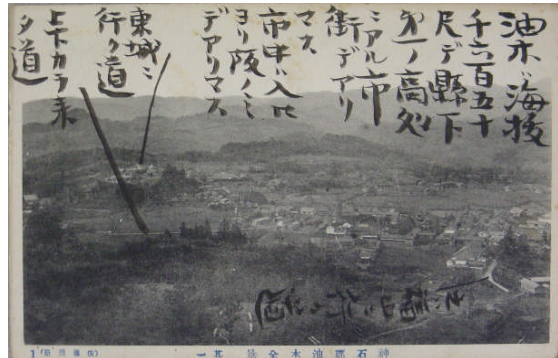 油木ハ海抜
千六百五十
尺デ縣下
第一ノ高処
ニアル市
街デアリ
マス
市中ハ入口
ヨリ阪ノミ
デアリマス
東城ニ
行ク道
上下カラ来
タ道
神石郡油木全景 其一